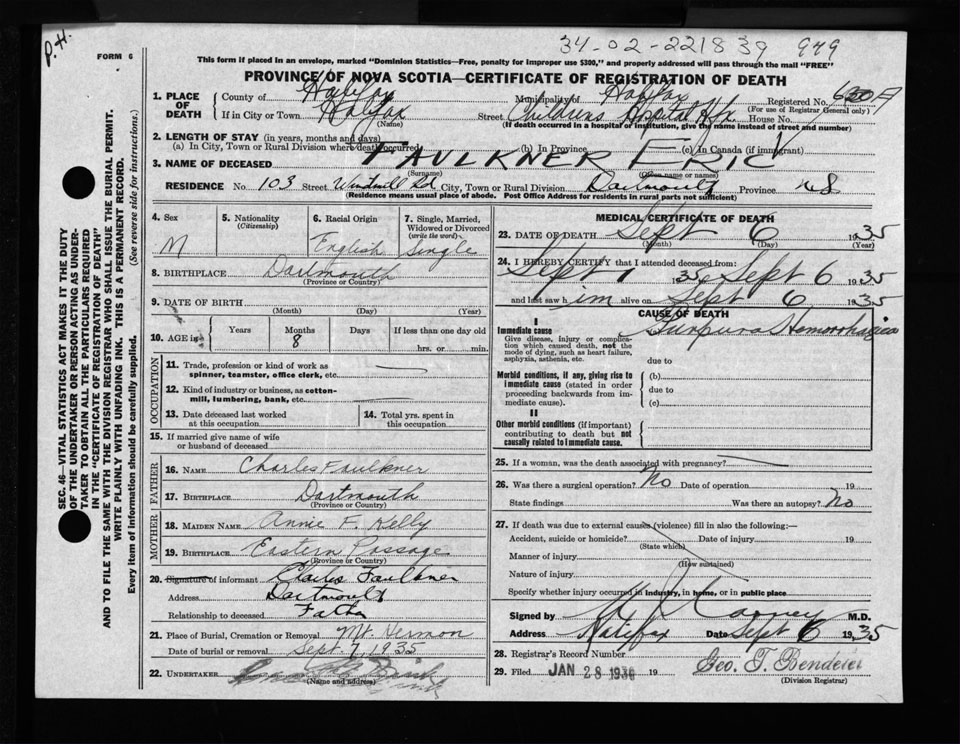 P.H.
34-02-221839 949
FORM 6
This form if placed in an envelope, marked "Dominion Statistics—Free, penalty for improper use $300," and properly addressed will pass through the mail "FREE"
PROVINCE OF NOVA SCOTIA—CERTIFICATE OF REGISTRATION OF DEATH
1. PLACE OF DEATH
County of Halifax Municipality of Halifax Registered No.
(For use of Registrar General only)
If in City or Town Halifax Street Childrens Hospital Hfx. House No.
(Name) (If death occurred in a hospital or institution, give the name instead of street and number)
2. LENGTH OF STAY (in years, months and days)
(a) In City, Town or Rural Division where death occurred (b) In Province (c) In Canada (if immigrant)
3. NAME OF DECEASED FAULKNER ERIC
(Surname) (Given name or names)
RESIDENCE No. 103 Street Windmill Rd City, Town or Rural Division Dartmouth Province N S
(Residence means usual place of abode. Post Office Address for residents in rural parts not sufficient)
4. Sex M
5. Nationality (Citizenship)
6. Racial Origin English
7. Single, Married, Widowed or Divorced (write the word) Single
8. BIRTHPLACE Dartmouth
(Province or Country)
9. DATE OF BIRTH
(Month) (Day) (Year)
10. AGE is Years Months 8 Days If less than one day old hrs. or min.
OCCUPATION
11. Trade, profession or kind of work as spinner, teamster, office clerk, etc.
12. Kind of industry or business, as cotton-mill, lumbering, bank, etc.
13. Date deceased last worked at this occupation
14. Total yrs. spent in this occupation
15. If married give name of wife or husband of deceased
FATHER
16. NAME Charles Faulkner
17. BIRTHPLACE Dartmouth
(Province or Country)
MOTHER
18. MAIDEN NAME Annie F. Kelly
19. BIRTHPLACE Eastern Passage
(Province or Country)
20. Signature of informant Charles Faulkner
Address Dartmouth
Relationship to deceased Father
21. Place of Burial, Cremation or Removal Mt. Hermon
Date of burial or removal Sept. 7, 1935
22. UNDERTAKER
(Name and address)
MEDICAL CERTIFICATE OF DEATH
23. DATE OF DEATH Sept 6 1935
(Month) (Day) (Year)
24. I HEREBY CERTIFY that I attended deceased from:
Sept 1 1935 Sept 6 1935
and last saw him alive on Sept 6 1935
CAUSE OF DEATH
I
Immediate cause Purpura Hemorrhagica
Give disease, injury or complication which caused death, not the mode of dying, such as heart failure, asphyxia, asthenia, etc.
due to
Morbid conditions, if any, giving rise to immediate cause (stated in order proceeding backwards from immediate cause).
(b)
due to
(c)
II
Other morbid conditions (if important) contributing to death but not causally related to immediate cause.
25. If a woman, was the death associated with pregnancy?
26. Was there a surgical operation? No Date of operation 19
State findings Was there an autopsy? No
27. If death was due to external causes (violence) fill in also the following:—
Accident, suicide or homicide? Date of injury 19
(State which)
Manner of injury
(How sustained)
Nature of injury
Specify whether injury occurred in industry, in home, or in public place
Signed by M.D.
Address Halifax Date Sept 6 1935
28. Registrar's Record Number
29. Filed JAN 28 1936 19 Geo. T. Bendeier
(Division Registrar)
SEC. 46—VITAL STATISTICS ACT MAKES IT THE DUTY
OF THE UNDERTAKER OR PERSON ACTING AS UNDER-
TAKER TO OBTAIN ALL THE PARTICULARS REQUIRED
IN THE "CERTIFICATE OF REGISTRATION OF DEATH"
AND TO FILE THE SAME WITH THE DIVISION REGISTRAR WHO SHALL ISSUE THE BURIAL PERMIT.
WRITE PLAINLY WITH UNFADING INK. THIS IS A PERMANENT RECORD.
Every item of information should be carefully supplied. (See reverse side for instructions.)